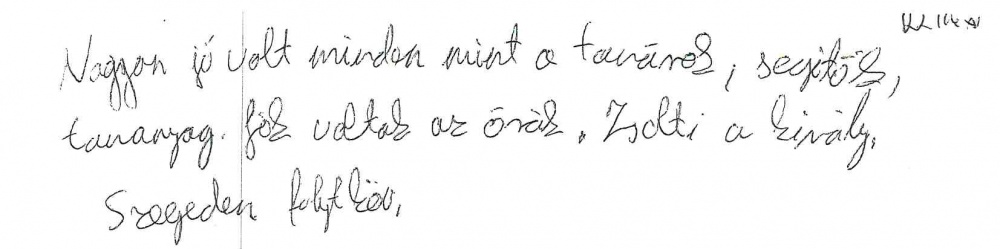 Nagyon jó volt minden mint a tanárok, segítők,
tananyag. Jók voltak az órák. Zsolti a király.
Szegeden folyt köv.